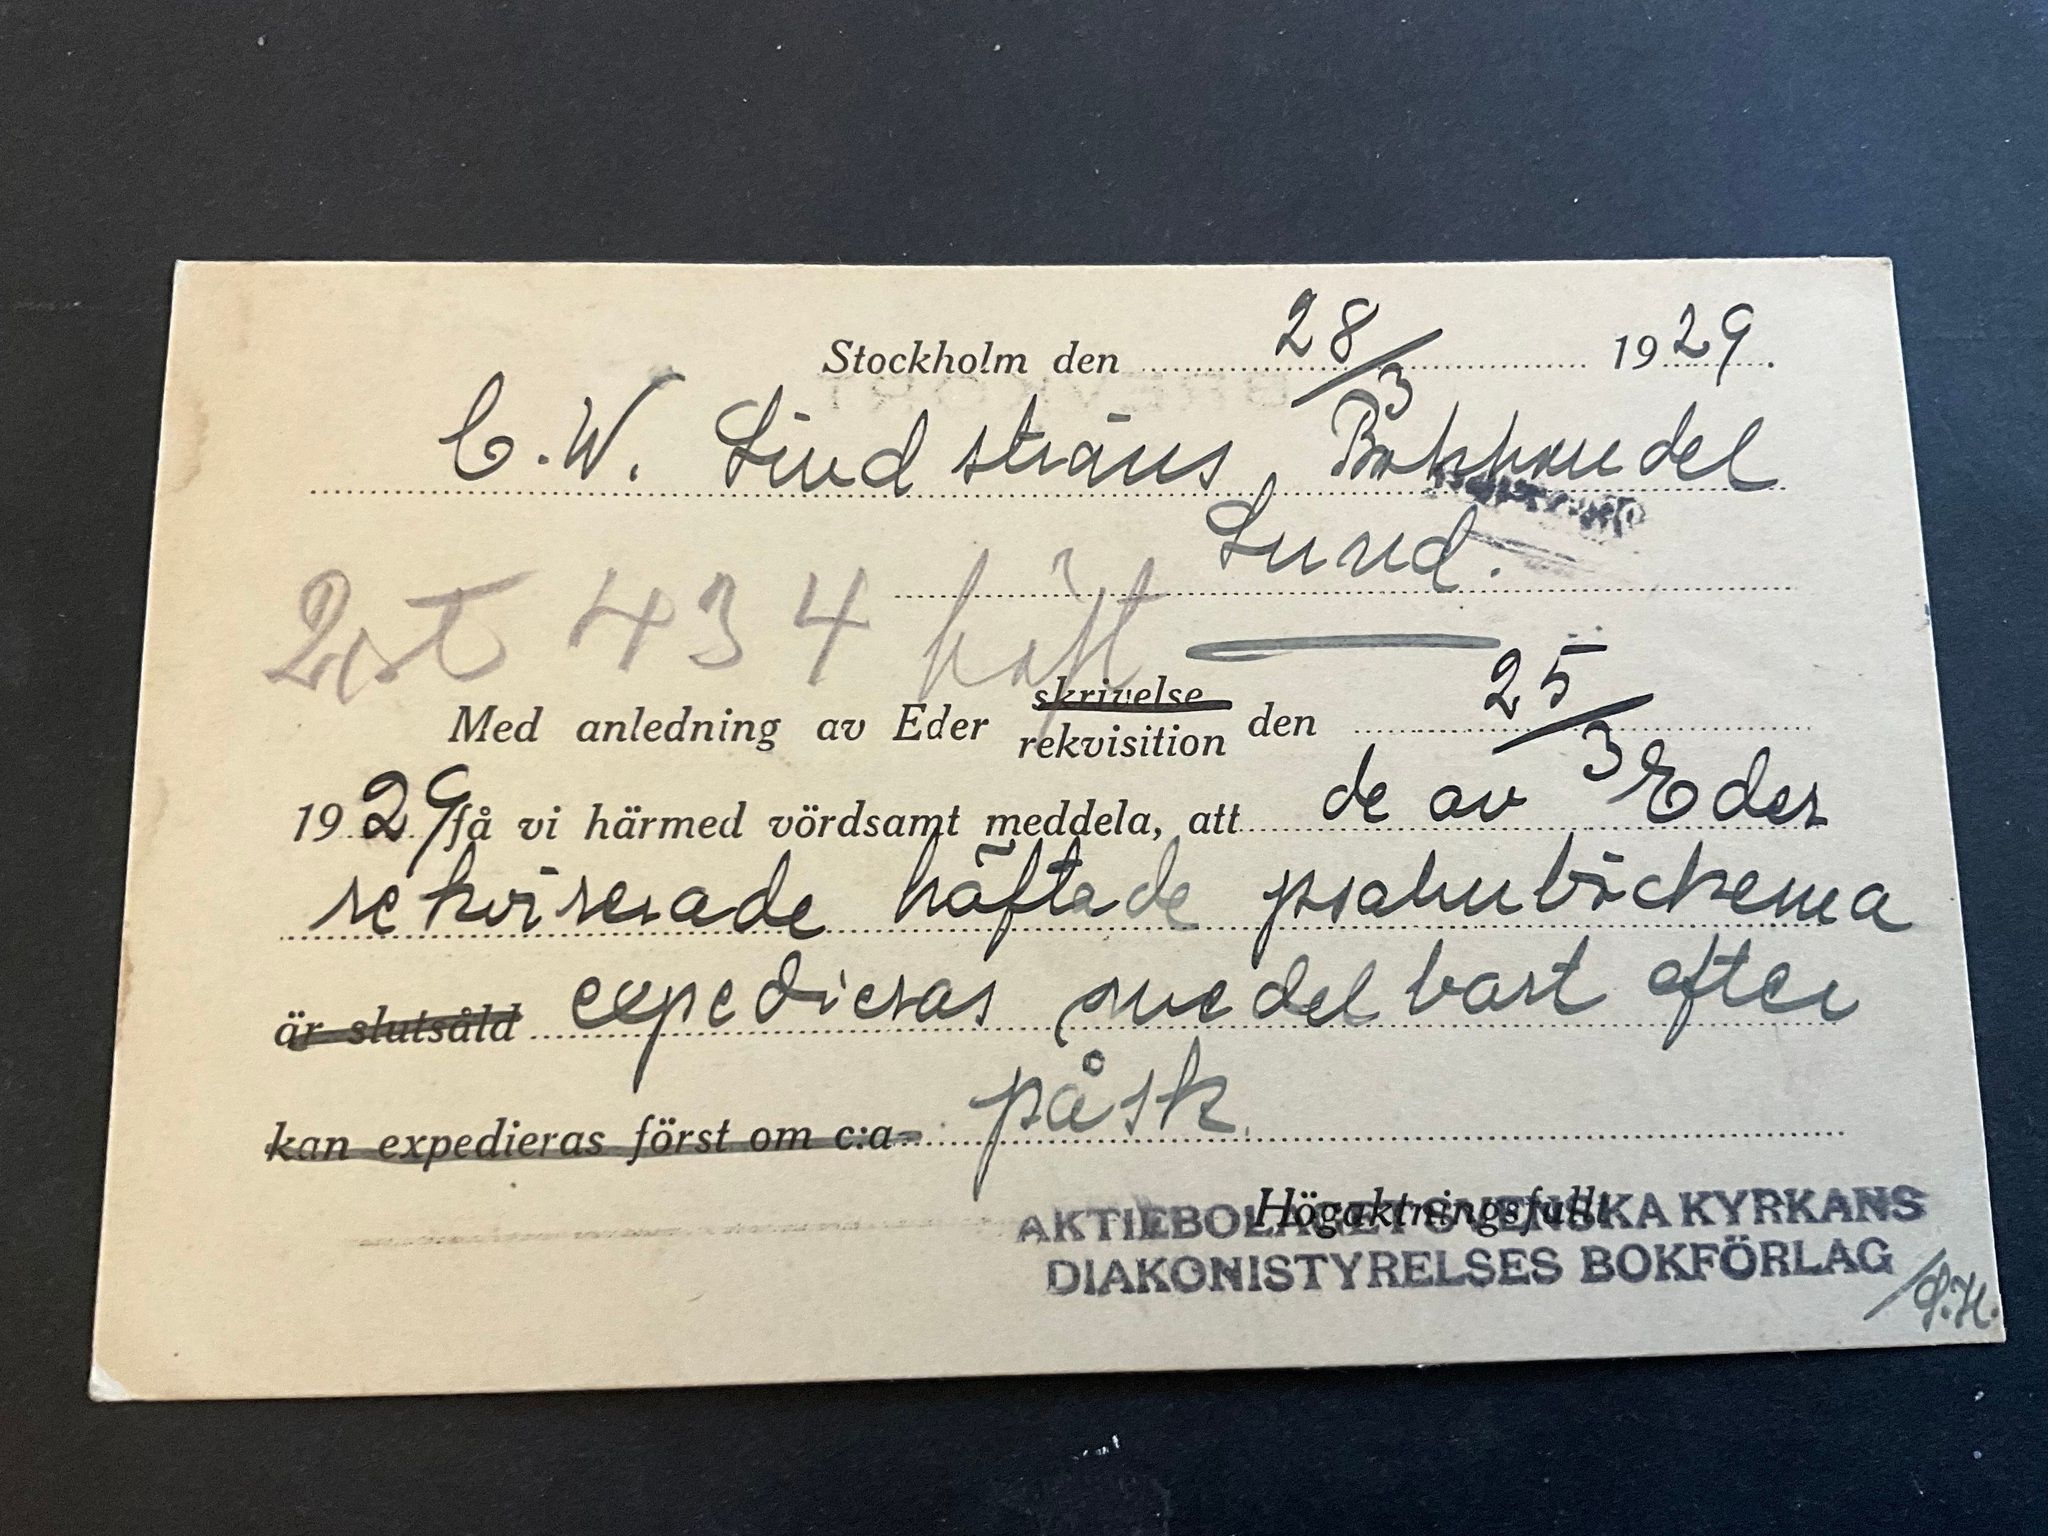 Stockholm den 28/3 1929.
C. W. Lindströms Bokhandel
Lund.
2 st 434 häft
Med anledning av Eder skrivelse rekvisition den 25/3
1929 få vi härmed vördsamt meddela, att de av Eder
rekvirerade häftade psalmböckerna
är slutsåld expedieras omedelbart efter
kan expedieras först om c:a påsk.
Högaktningsfullt
AKTIEBOLAGET SVENSKA KYRKANS
DIAKONISTYRELSES BOKFÖRLAG
/S.H.